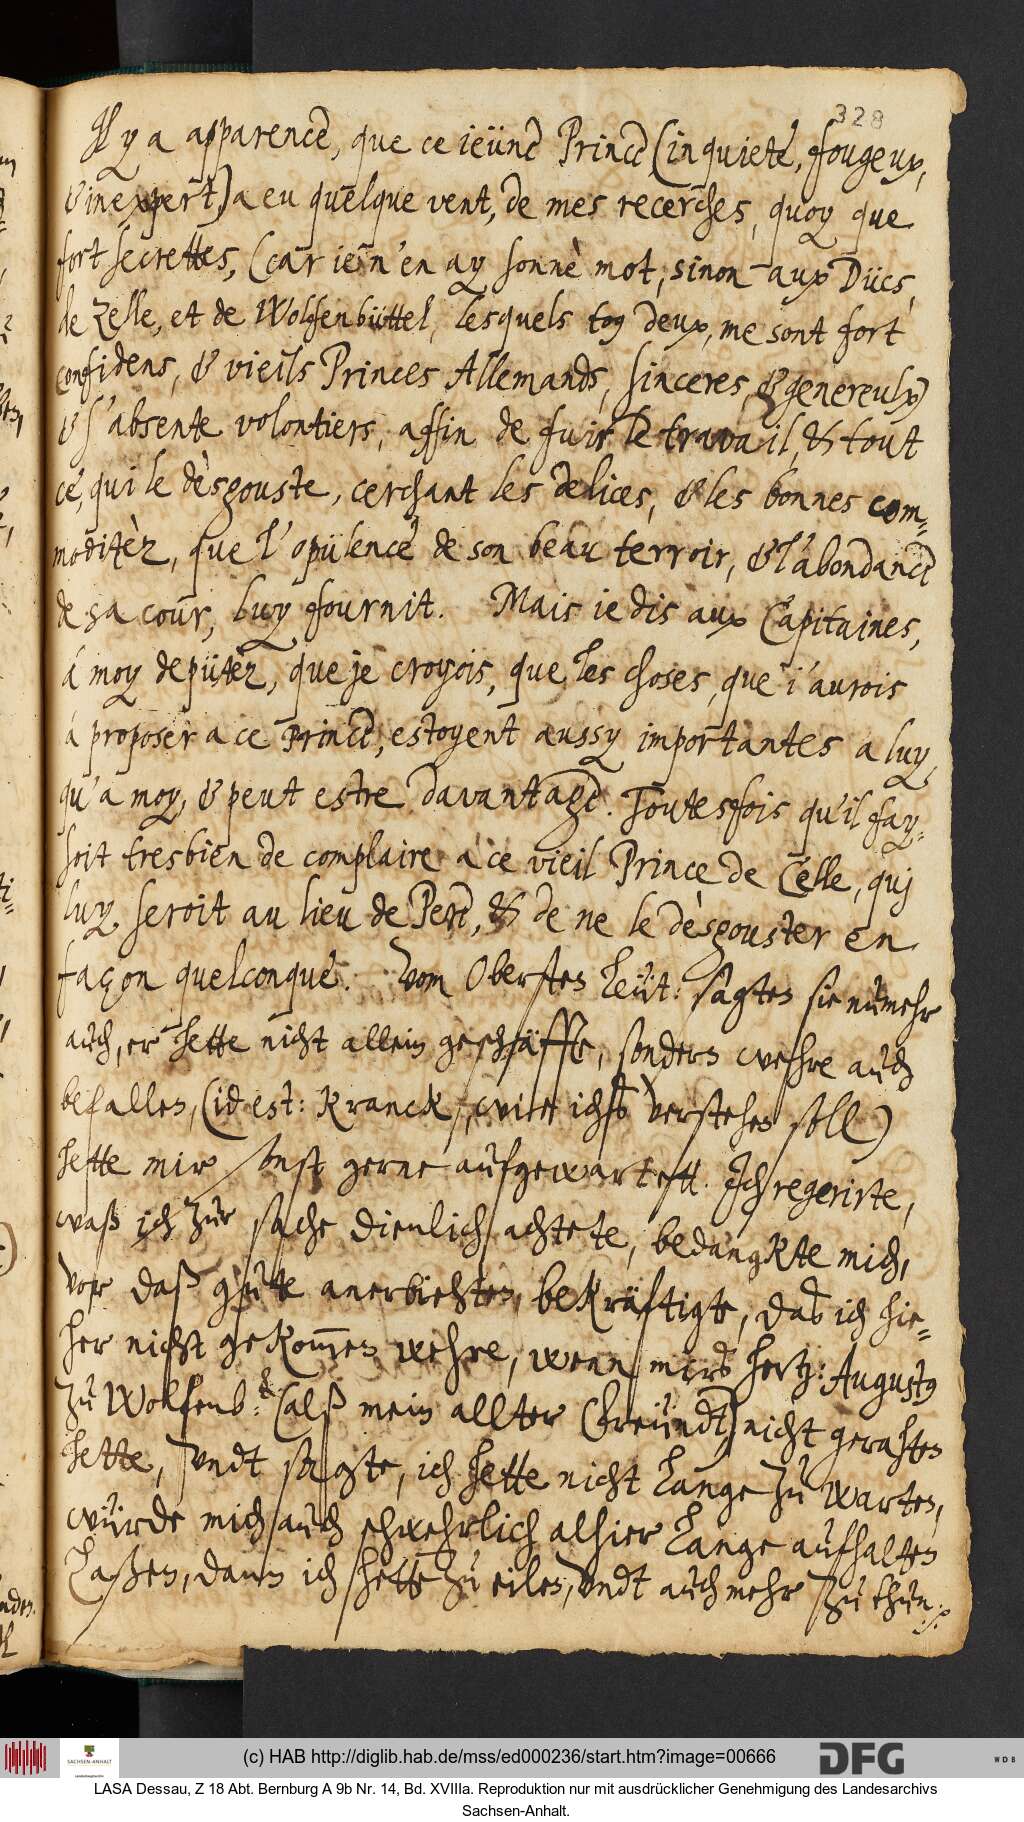 328
Il y a apparence, que ce ieünc Prince (inquieté, fougeux,
& inexpert,) a eu quelque vent, de mes recerches, quoy que
fort secrettes, (car ie n'en ay sonnè mot, sinon aux Dücs,
de Zelle, et de Wolfenbüttel, lesquels tous deux, me sont fort
confidens, & vieils Princes Allemands, sinceres, & genereulx)
& s'absente volontiers, affin de fuir le travail, & tout
ce, qui le dèsgouste, cerchant les delices, & les bonnes com-
moditèz, que l'opülence de son beau terroir, & l'abondance
de sa cour, luy fournit. Mais ie dis aux Capitaines,
á moy depütèz, que je croyois, que les choses, que i'aurois
á proposer a ce Prince, estoyent aussy importantes a luy,
qu'a moy, & peut estre davantage. Toutesfois qu'il fay-
soit tresbien de complaire a ce vieil Prince de Celle, quj
luy seroit au lieu de Pere, & de ne le dèsgouster en
façon quelconque. Vom Obersten Leüt: sagten sie numehr
auch, er hette nicht allein geschäffte, sondern wehre auch
befallen, (id est: Kranck, wie ichs verstehen soll)
hette mir sonst gerne aufgewartett. Jch regerirte,
waß ich zur sache dienlich achtete, bedangkte mich,
vor daß gute anerbiehten, bekräftigte, das ich hie-
her nicht gekommen wehre, wenn mirs hertz: Augustus
zu Wolfenb: (alß mein allter freündt) nicht gerahten
hette, vndt sagte, ich hette nicht lange zu warten,
würde mich auch schwehrlich alhier lange aufhalten
laßen, dann ich hette zu eilen, vndt auch mehr zu thun.
(c) HAB http://diglib.hab.de/mss/ed000236/start.htm?image=00666
SACHSEN-ANHALT
DFG
WDB
LASA Dessau, Z 18 Abt. Bernburg A 9b Nr. 14, Bd. XVIIIa. Reproduktion nur mit ausdrücklicher Genehmigung des Landesarchivs
Sachsen-Anhalt.